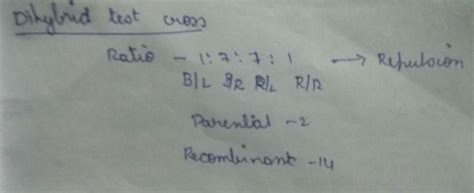 Dihybrid test cross
Ratio - 1:7:7:1 → Repulsion
B/L BR R/L R/R
Parental - 2
Recombinant - 14